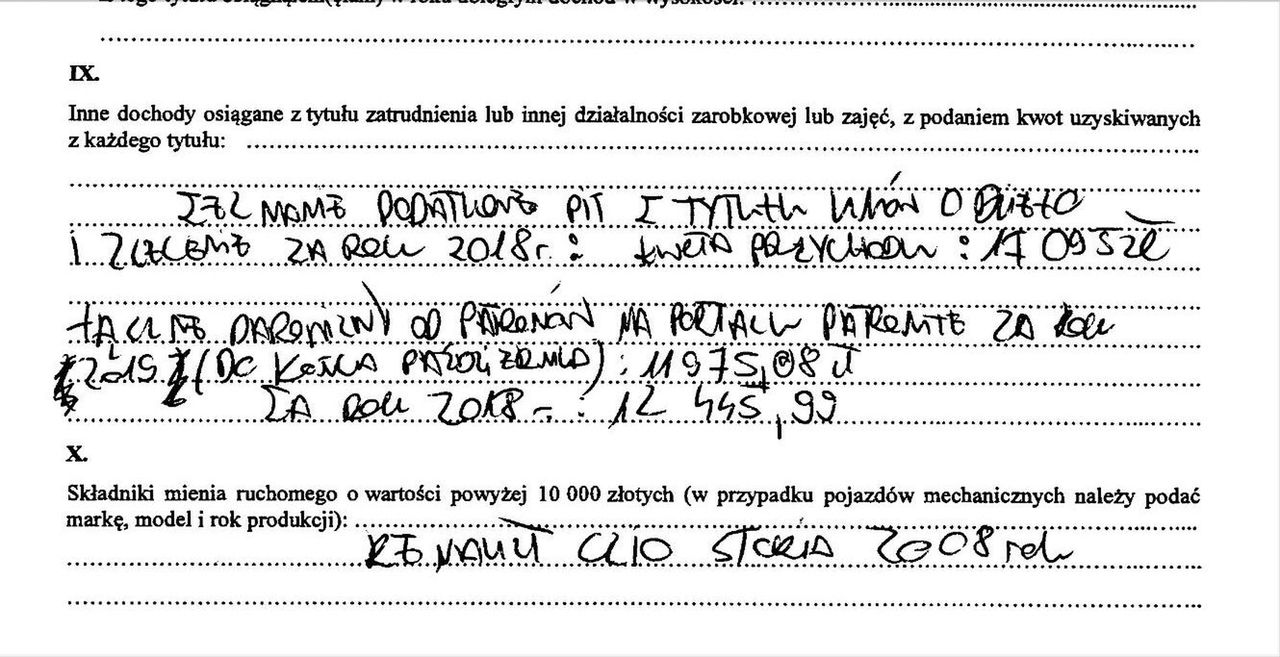 z tego tytułu osiągnąłem(ęłam) w roku ubiegłym dochód w wysokości:
IX.
Inne dochody osiągane z tytułu zatrudnienia lub innej działalności zarobkowej lub zajęć, z podaniem kwot uzyskiwanych
z każdego tytułu:
ZEZNANIE PODATKOWE PIT Z TYTUŁU UMÓW O DZIEŁO
I ZLECENIE ZA ROK 2018 r. : KWOTA PRZYCHODU : 17 095 ZŁ
ŁĄCZNE DAROWIZNY OD PATRONÓW NA PORTALU PATRONITE ZA ROK
2019 (DO KOŃCA PAŹDZIERNIKA) : 11 975,08 zł
ZA ROK 2018 - : 12 445,99
X.
Składniki mienia ruchomego o wartości powyżej 10 000 złotych (w przypadku pojazdów mechanicznych należy podać
markę, model i rok produkcji):
RENAULT CLIO STORIA 2008 rok